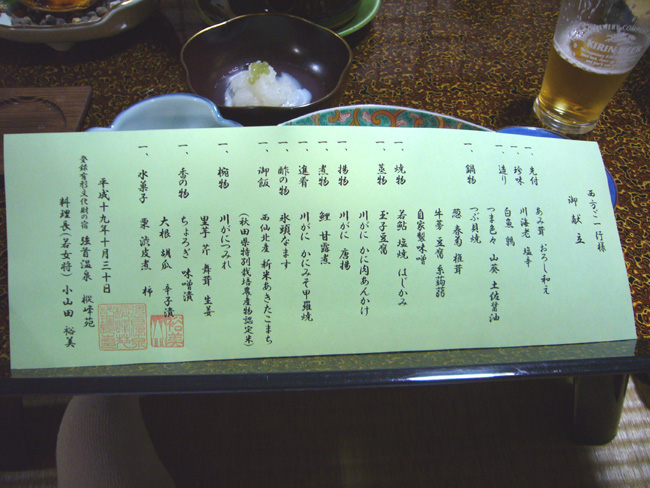 西方ご一行様
御献立
一、先付 あみ茸 おろし和え
一、珍味 川海老 塩辛
一、造り 白魚 鶉
つま色々 山葵 土佐醤油
つぶ貝焼
一、鍋物 葱 春菊 椎茸
牛蒡 豆腐 糸蒟蒻
自家製味噌
一、焼物 若鮎 塩焼 はじかみ
一、蒸物 玉子豆腐
川がに かに肉あんかけ
一、揚物 川がに 唐揚
一、煮物 鯉 甘露煮
一、進肴 川がに かにみそ甲羅焼
一、酢の物 氷頭なます
一、御飯 西仙北産 新米あきたこまち
(秋田県特別栽培農産物認定米)
一、椀物 川がにつみれ
里芋 芹 舞茸 生姜
一、香の物 ちょろぎ 味噌漬
大根 胡瓜 辛子漬
一、水菓子 栗 渋皮煮 柿
平成十九年十月三十日
登録有形文化財の宿 強首温泉 樅峰苑
料理長(若女将) 小山田 裕美
KIRIN BEER